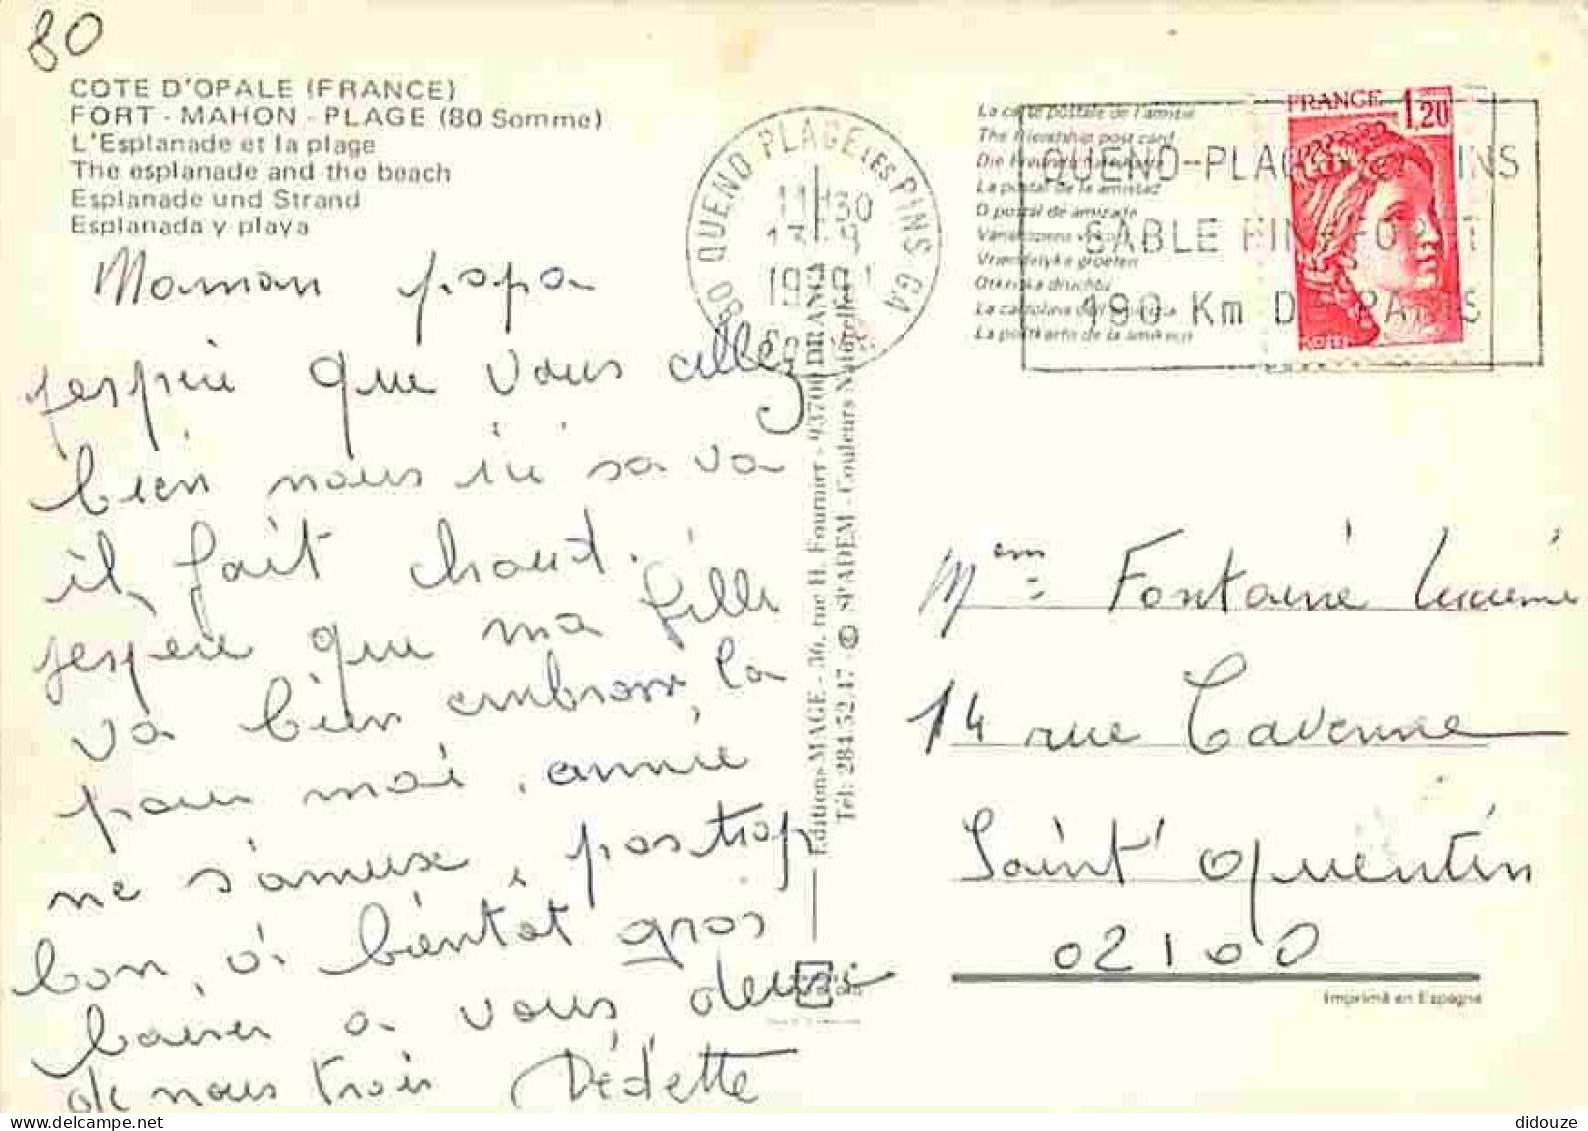 80
COTE D'OPALE (FRANCE)
FORT - MAHON - PLAGE (80 Somme)
L'Esplanade et la plage
The esplanade and the beach
Esplanade und Strand
Esplanada y playa
Maman papa
jespère que vous allez
bien nous ici sa va
il fait chaud.
jespere que ma fille
va bien embrasse, la
pour moi, annie
ne s'amuse, pas trop
bon, a bientôt gros
baiser a vous deux
de nous trois Dédette
80 QUEND PLAGE LES PINS GA
11H30
Editions MAGE - 36, rue H. Fournier - 93700 DRANCY
Tél: 284.52.47 - © SPADEM - Couleurs Naturelles
La carte postale de l'amitié
The friendship post card
La postal de la amistad
O postal de amizade
Vriendelyke groeten
La postkarto de la amikeco
FRANCE 1,20
QUEND-PLAGE PINS
SABLE FIN FORET
190 Km DE PARIS
Mem Fontaine Lucienne
14 rue Cavenne
Saint Quentin
02100
Imprimé en Espagne
didouze